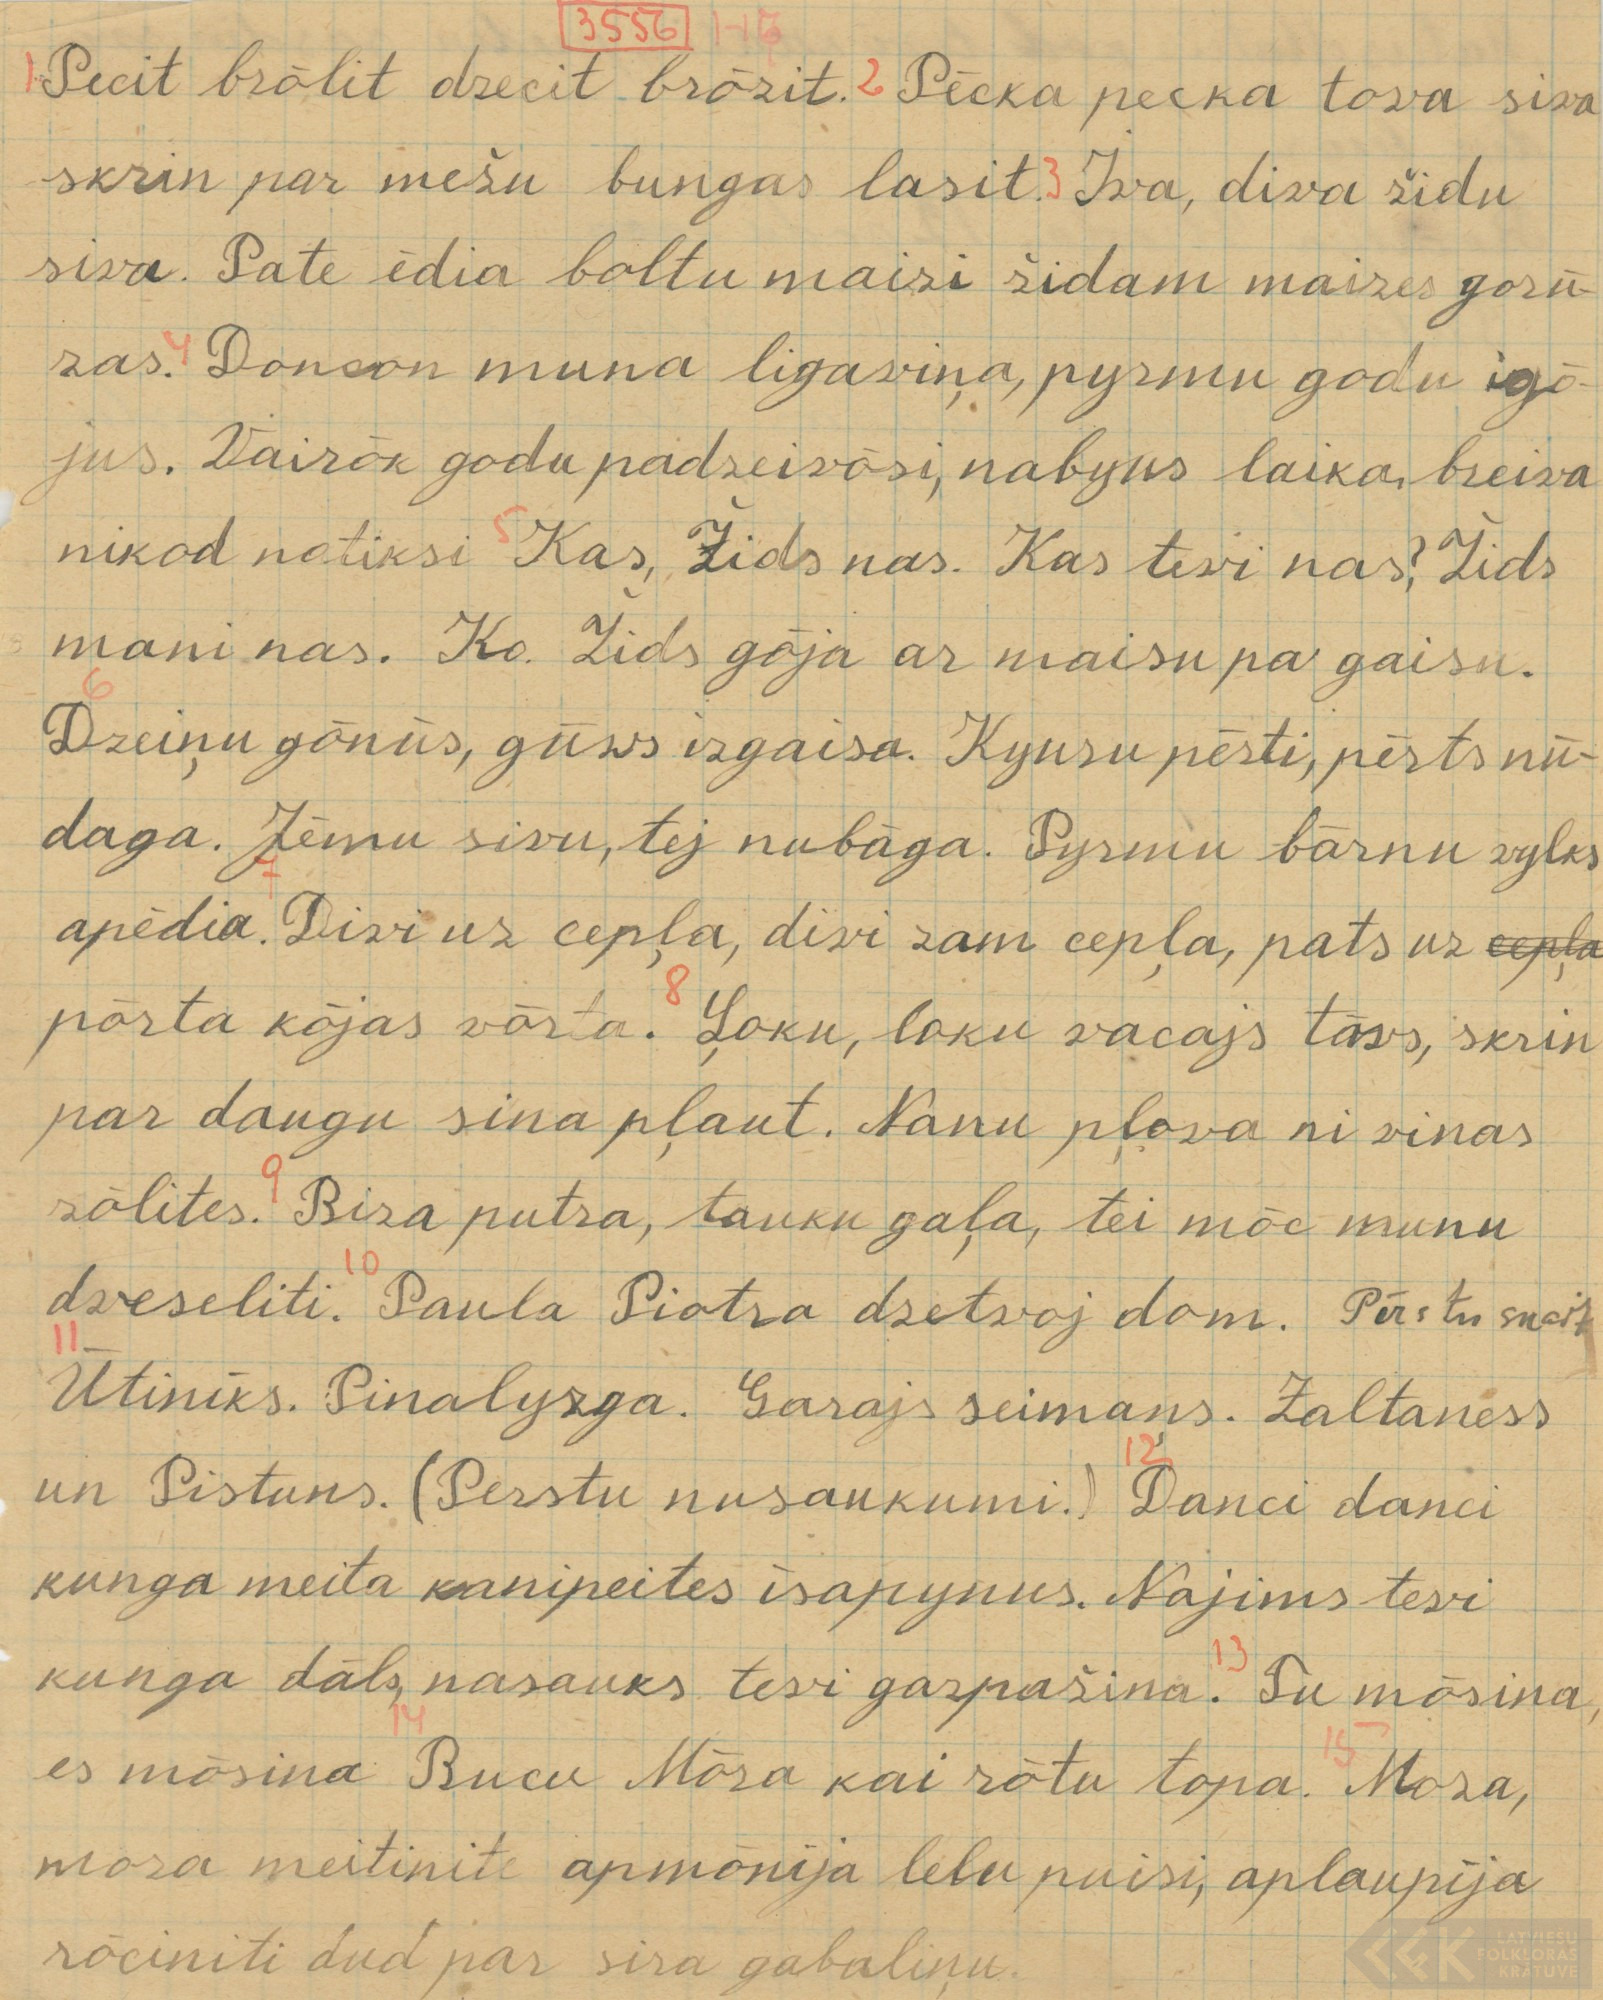 3556 1-16
1. Pecit brōlit dzecit brōzit. 2 Pēcka pecka tova siva
skrin par mežu bungas lasit. 3 Iva, diva židu
siva. Pate ēdia boltu maizi židam maizes gorū-
zas. 4 Doncon muna ligaviņa, pyrmu godu igō-
jus. Vairōk godu padzeivōsi, nabyus laika, breiva
nikod natiksi 5 Kas, Žids nas. Kas tevi nas? Žids
mani nas. Ko. Žids gōja ar maisu pa gaisu.
6 Dzeiņu gōnūs, gūvs izgaisa. Kyuru pērti, pērts nū-
daga. Jēmu sivu, tej nubāga. Pyrmu bārnu vylks
apēdia. 7 Divi uz cepļa, divi zam cepļa, pats uz cepļa
pōrta kōjas vōrta. 8 Ļoku, loku vacajs tāvs, skrin
par daugu sina pļaut. Nanu pļova ni vinas
zōlites. 9 Biza putra, tauku gaļa, tei mōc munu
dveseliti. 10 Paula Piotra dzetvoj dom. Pērstu
11 Ūtinīks. Pinalyzga. Garajs seimans. Zaltaness
un Pistuns. (Perstu nusaukumi.) 12 Danci danci
kunga meita kanipeites īsapynus. Najims tevi
kunga dāls, nasauks tevi gazpažina. 13 Tu mōsina,
es mōsina 14 Bucu Mōza kai rōtu topa. 15 Moza,
moza meitinite apmōnīja lelu puisi, aplaupīja
rōciniti dud par sira gabaliņu.
LATVIEŠU
FOLKLORAS
KRĀTUVE